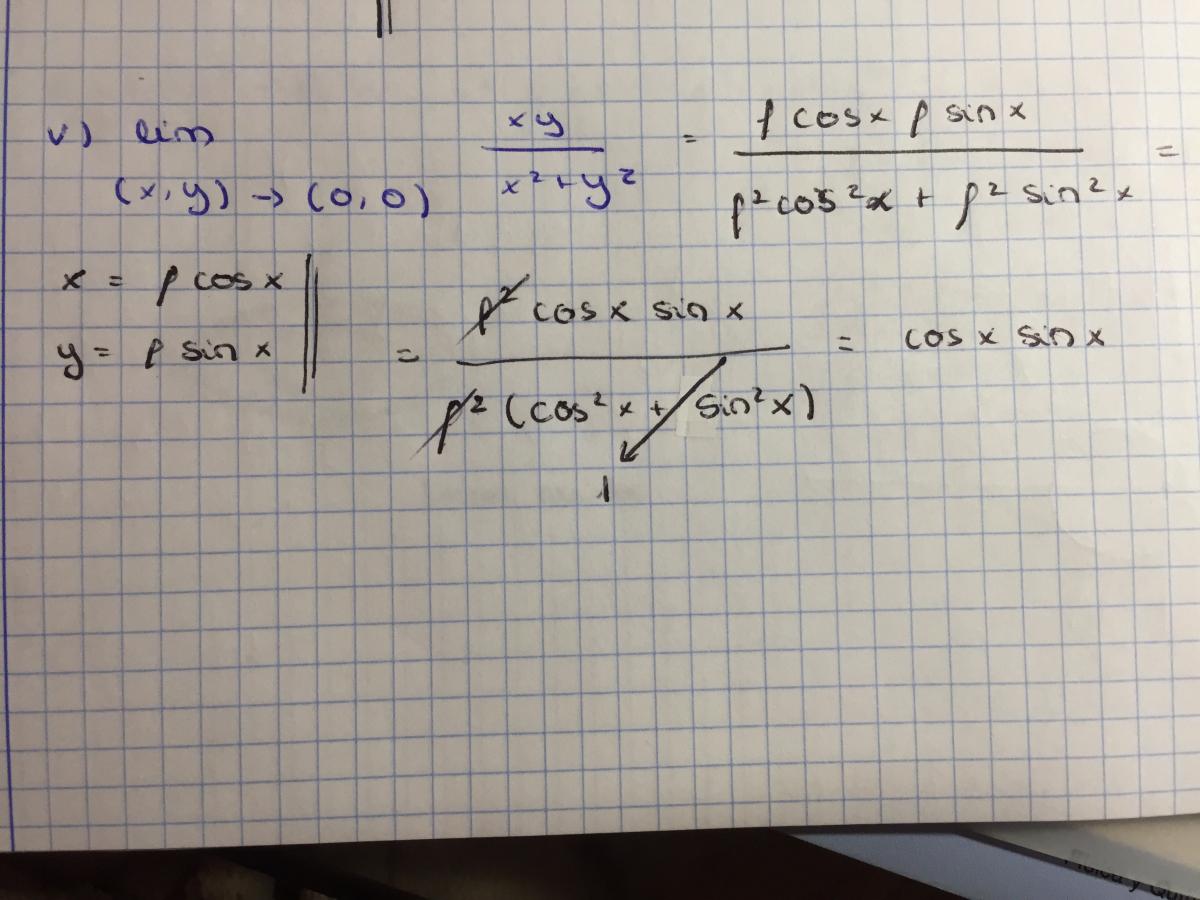 v) lim (x,y) → (0,0) xy / x²+y² = ρ cos x ρ sin x / ρ² cos² x + ρ² sin² x =
x = ρ cos x
y = ρ sin x
= ρ² cos x sin x / ρ² (cos² x + sin² x) = cos x sin x
1
Física y Quí